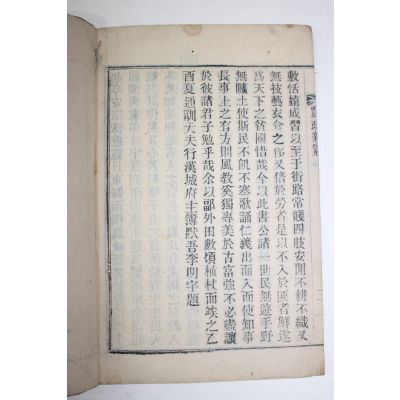 敷恬嬉成習以至于街路常賤四肢安閒不耕不織又
無技藝衣食之夥又倍於勞者是以不入於匪者鮮遂
爲天下之貧國惜哉今以此書公諸一世民無遊手野
無曠土使斯民不飢不寒歌誦仁義出而入而使知事
長事上之有方則風教奚獨專美於古富強不必盡讓
於彼諸君子勉乎哉余以鄙外田數頃植杖而竢之乙
酉夏通訓大夫行漢城府主簿默吾李明宇題